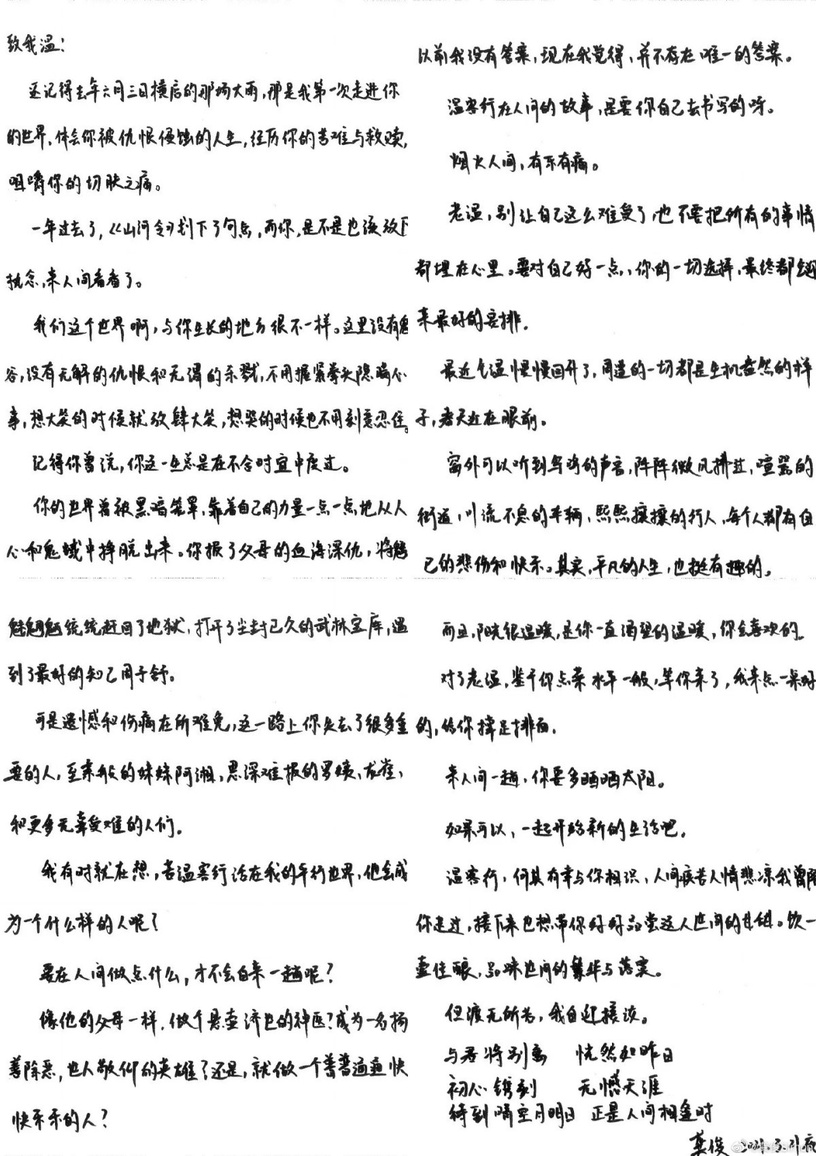 致我温:
还记得去年六月三日横店的那场大雨,那是我第一次走进你
的世界,体会你被仇恨侵蚀的人生,经历你的苦难与救赎,
咀嚼你的切肤之痛。
一年过去了,《山河令》划下了句点,而你,是不是也该放下
执念,来人间看看了。
我们这个世界啊,与你生长的地方很不一样。这里没有鬼
谷,没有无解的仇恨和无谓的杀戮,不用握紧拳头隐瞒心
事,想大笑的时候就放肆大笑,想哭的时候也不用刻意忍住。
记得你曾说,你这一生总是在不合时宜中度过。
你的世界曾被黑暗笼罩,靠着自己的力量一点一点地从人
心和鬼蜮中挣脱出来。你报了父母的血海深仇,将魑
魅魍魉统统赶回了地狱,打开了尘封已久的武林宝库,遇
到了最好的知己周子舒。
可是遗憾和伤痛在所难免,这一路上你失去了很多重
要的人,至亲般的妹妹阿湘,恩深难报的罗姨,龙雀,
和更多无辜受难的人们。
我有时就在想,若温客行活在我的平行世界,他会成
为一个什么样的人呢?
要在人间做点什么,才不会白来一趟呢?
像他的父母一样,做个悬壶济世的神医?成为一名扬
善除恶,世人敬仰的英雄?还是,就做一个普普通通快
快乐乐的人?
以前我没有答案,现在我觉得,并不存在唯一的答案。
温客行在人间的故事,是要你自己去书写的呀。
烟火人间,有乐有痛。
老温,别让自己这么难受了,也不要把所有的事情
都埋在心里。要对自己好一点,你的一切选择,最终都迎
来最好的安排。
最近气温慢慢回升了,周遭的一切都是生机盎然的样
子,春天近在眼前。
窗外可以听到鸟鸣的声音,阵阵微风拂过,喧嚣的
街道,川流不息的车辆,熙熙攘攘的行人,每个人都有自
己的悲伤和快乐。其实,平凡的人生,也挺有趣的。
而且,阳光很温暖,是你一直渴望的温暖,你会喜欢的。
对了老温,鉴于你点菜水平一般,等你来了,我来点一桌好
的,给你撑足排面。
来人间一趟,你要多晒晒太阳。
如果可以,一起开始新的生活吧。
温客行,何其有幸与你相识,人间疾苦人情悲凉我曾陪
你走过,接下来也想带你好好品尝这人世间的甘甜。饮一
壶佳酿,品味世间的繁华与落寞。
但渡无所苦,我自迎接该。
与君将别离 恍然如昨日
初心镌刻 无憾天涯
待到晴空月明日 正是人间相逢时
龚俊 2021.3.21夜